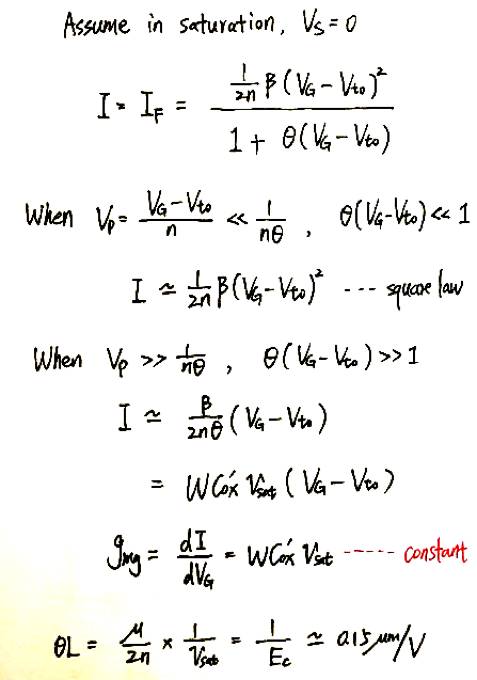 Assume in saturation, V_S = 0
I = I_F = \frac{\frac{1}{2n} β (V_G - V_{to})^2}{1 + θ(V_G - V_{to})}
When V_P = \frac{V_G - V_{to}}{n} << \frac{1}{nθ} , θ(V_G - V_{to}) << 1
I ≃ \frac{1}{2n} β (V_G - V_{to})^2 --- square law
When V_P >> \frac{1}{nθ} , θ(V_G - V_{to}) >> 1
I ≃ \frac{β}{2nθ} (V_G - V_{to})
= W C_{ox}' V_{sat} (V_G - V_{to})
g_{mg} = \frac{dI}{dV_G} = W C_{ox}' V_{sat} ----- constant
θL = \frac{μ}{2n} × \frac{1}{V_{sat}} = \frac{1}{E_c} ≃ 0.15 μm/V